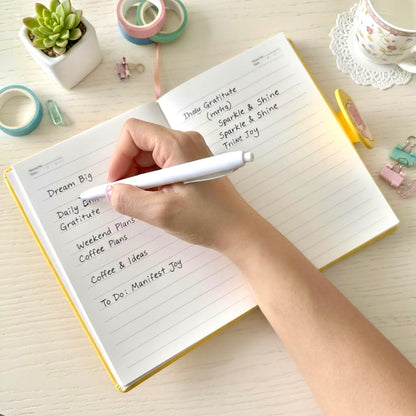 Dream Big
Daily
Gratitude
Weekend Plans
Coffee Plans
Coffee & Ideas
To Do: Manifest Joy
Gratitude
(mrha)
Sparkle & Shine
Sparkle & Shine
Joy